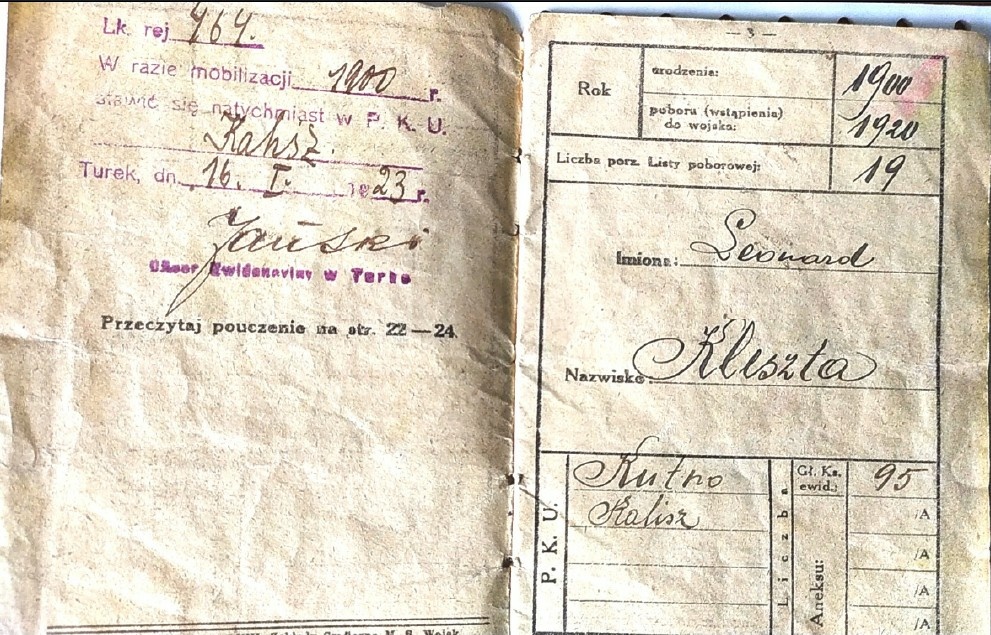 Lk. rej 464.
W razie mobilizacji 1900 r.
stawić się natychmiast w P. K. U.
Kalisz.
Turek, dn. 16. I. 1923 r.
w Turku
Przeczytaj pouczenie na str. 22—24.
M. S. Wojsk.
— 3 —
Rok
urodzenia: 1900
poboru (wstąpienia)
do wojska: 1920
Liczba porz. Listy poborowej: 19
Imiona: Leonard
Nazwisko: Kleszta
P. K. U.
Kutno
Kalisz
Liczba
Gł. Ks.
ewid.: 95
Aneksu:
/A
/A
/A
/A